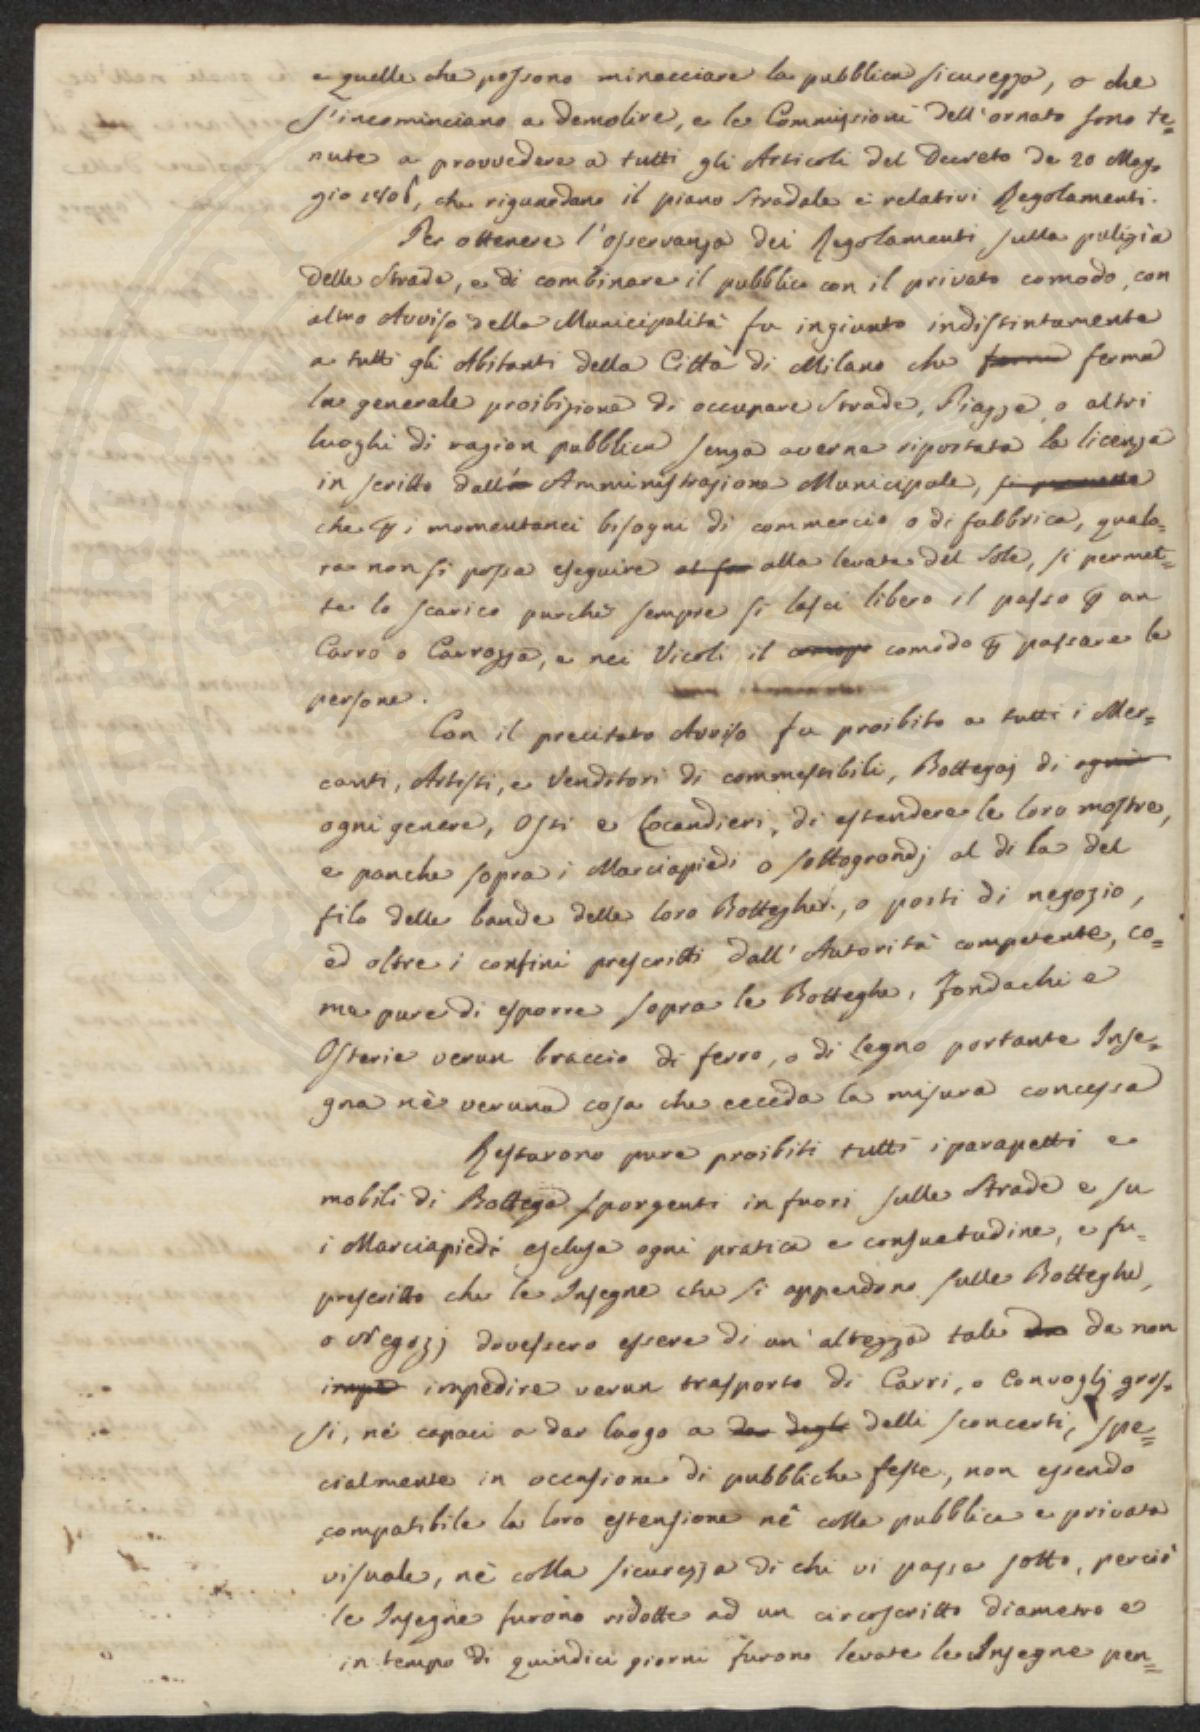 e quelle che possono minacciare la pubblica sicurezza, o che
s'incominciano a demolire, e le Commissioni dell'ornato sono te=
nute a provvedere a tutti gli Articoli del Decreto de 20 Mag=
gio 1806, che riguardano il piano Stradale e i relativi Regolamenti.
Per ottenere l'osservanza dei Regolamenti sulla pulizia
delle Strade, e di combinare il pubblico con il privato comodo, con
altro Avviso della Municipalità fu ingiunto indistintamente
a tutti gli Abitanti della Città di Milano che ferma
la generale proibizione di occupare Strade, Piazze o altri
luoghi di ragion pubblica senza averne riportata la licenza
in scritto dall' Amministrazione Municipale,
che p i momentanei bisogni di commercio o di fabbrica, qualo=
ra non si possa eseguire alla levata del Sole, si permet=
te lo scarico purchè sempre si lasci libero il passo p un
Carro o Carrozza, e nei Vicoli il comodo p passare le
persone.
Con il precitato Avviso fu proibito a tutti i Mer=
canti, Artisti, e Venditori di commestibili, Bottegaj di ogni
ogni genere, Osti e Locandieri, di estendere le loro mostre,
e panche sopra i Marciapiedi o sottogrondj al di la del
filo delle bande delle loro Botteghe, o posti di negozio,
ed oltre i confini prescritti dall'Autorità competente, co=
me pure di esporre sopra le Botteghe, Fondachi e
Osterie verun braccio di ferro, o di legno portante Inse=
gna nè veruna cosa che ecceda la misura concessa
Restarono pure proibiti tutti i parapetti e
mobili di Bottega sporgenti in fuori sulle Strade e su
i Marciapiedi esclusa ogni pratica e consuetudine, e fu
prescritto che le Insegne che si appendono sulle Botteghe,
o Negozj dovessero essere di un'altezza tale da non
impe impedire verun trasporto di Carri, o Convoglj gros=
si, né capaci a dar luogo a dar degli delli sconcerti, spe=
cialmente in occasione di pubbliche feste, non essendo
compatibile la loro estensione nè colla pubblica e privata
visuale, nè colla sicurezza di chi vi passa sotto, perciò
le Insegne furono ridotte ad un circoscritto diametro e
in tempo di quindici giorni furono levate le Insegne pen=